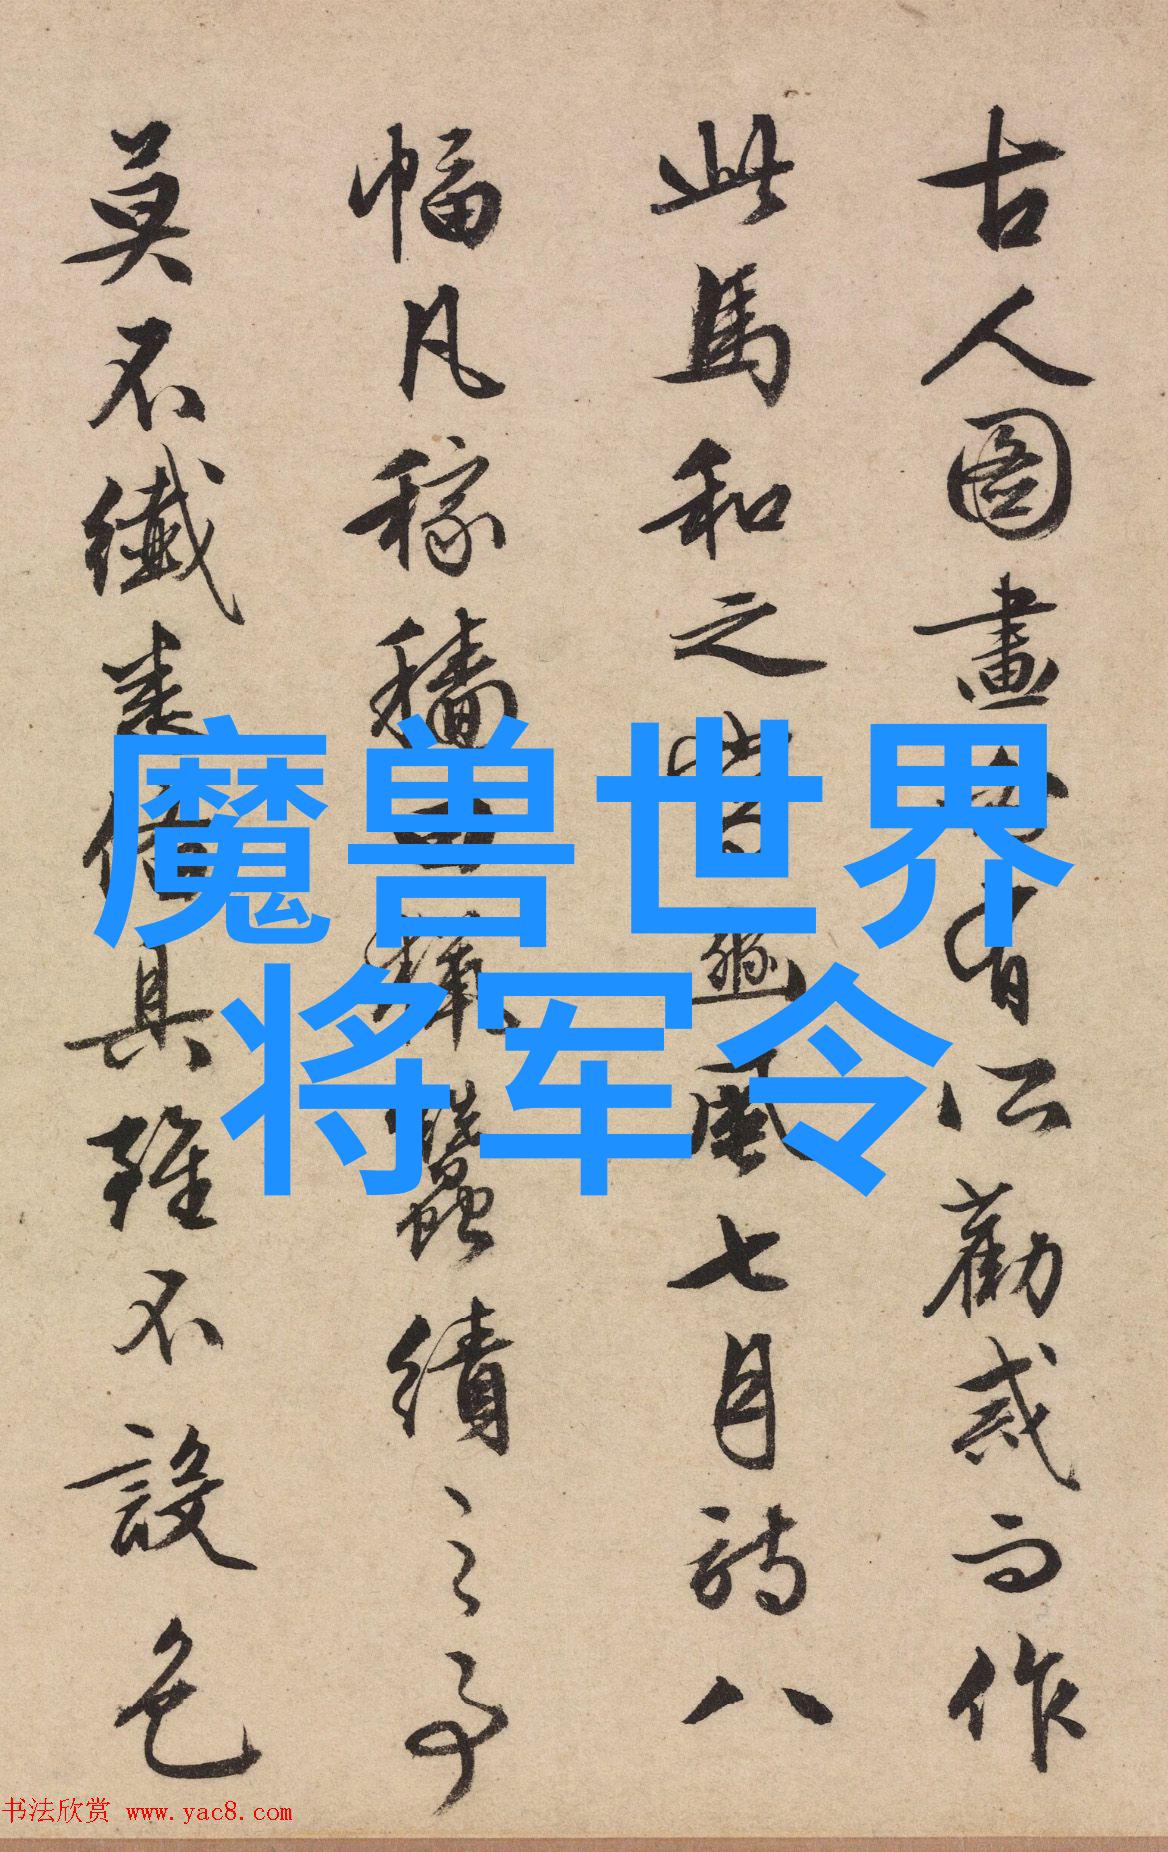 古人圖畫必有所勸戒而作
此馬和之畫豳風七月詩八
幅凡稼穡田獵蠶績之事
莫不纖悉備具雖不設色
魔兽世界
将军令
书法欣赏 www.yac8.com